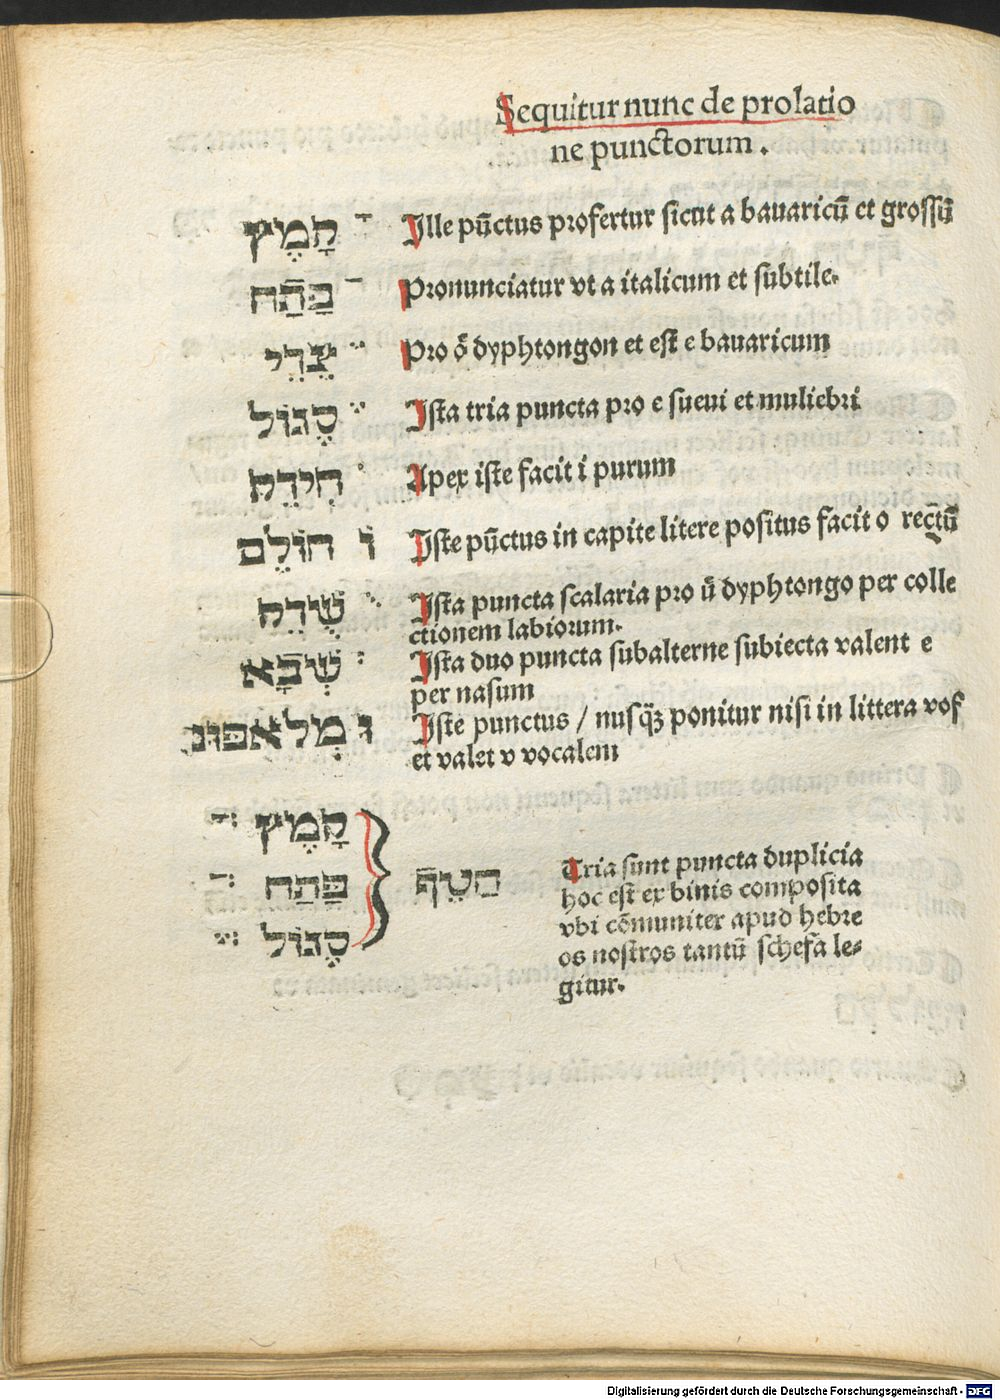 Sequitur nunc de prolatio
ne punctorum .
קָמֶץ ָ Ille pũctus profertur sicut a bauaricũ et grossũ
פַּתַּח ַ Pronunciatur vt a italicum et subtile.
צֵרֵי ֵ Pro ő dyphtongon et est e bauaricum
סֶגּוֹל ֶ Ista tria puncta pro e sueui et muliebri
חִירֵק ִ Apex iste facit i purum
חוֹלֵם וֹ Iste pũctus in capite litere positus facit o rectũ
שֻׁרֵק ֻ Ista puncta scalaria pro ű dyphtongo per colle
ctionem labiorum.
שְׁבָא ְ Ista duo puncta subalterne subiecta valent e
per nasum
מְלאפּוּם וּ Iste punctus / nusq̃ꝫ ponitur nisi in littera vof
et valet v vocalem
קָמֶץ ֲָ
פַּתַח ֲ
סֶגּוֹל ֱ
חַטֵף
Tria sunt puncta duplicia
hoc est ex binis composita
vbi cõmuniter apud hebre
os nostros tantũ schefa le-
gitur.
Digitalisierung gefördert durch die Deutsche Forschungsgemeinschaft - DFG